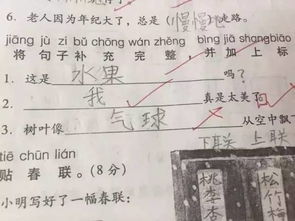 6. 老人因为年纪大了，总是（慢慢）走路。
jiāng jù zi bǔ chōng wán zhěng bìng jiā shang biāo
将句子补充完整，并加上标
1. 这是水果吗？
2. 我真是太美了
3. 树叶像气球从空中飘
tiē chūn lián
贴春联。（8分）
小明写好了一幅春联：
下联 上联
桃李杏
松竹梅